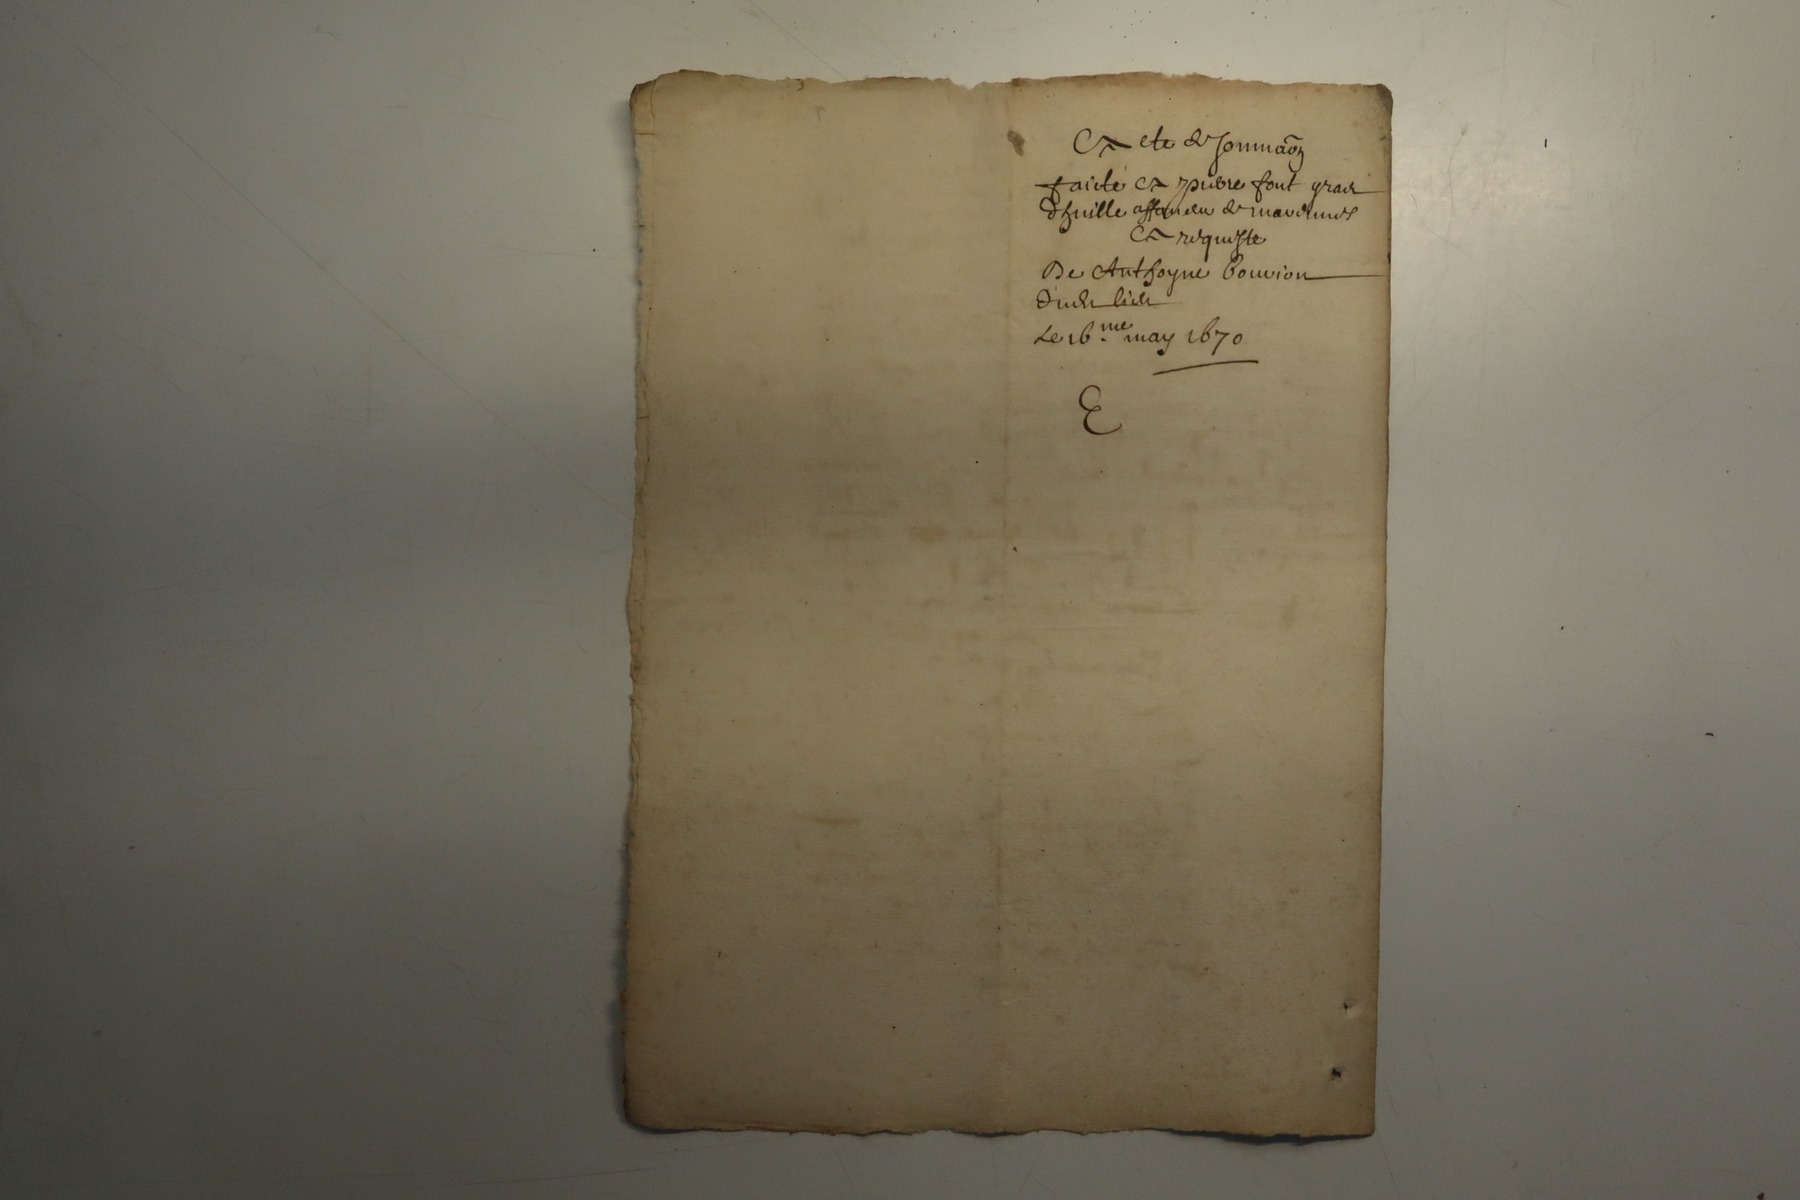 Acte de sommaõn
faicte a pierre font grave
d'huille affaneu de
A requeste
De Anthoyne bouvion
dudt lieu
Le 16.me may 1670
E